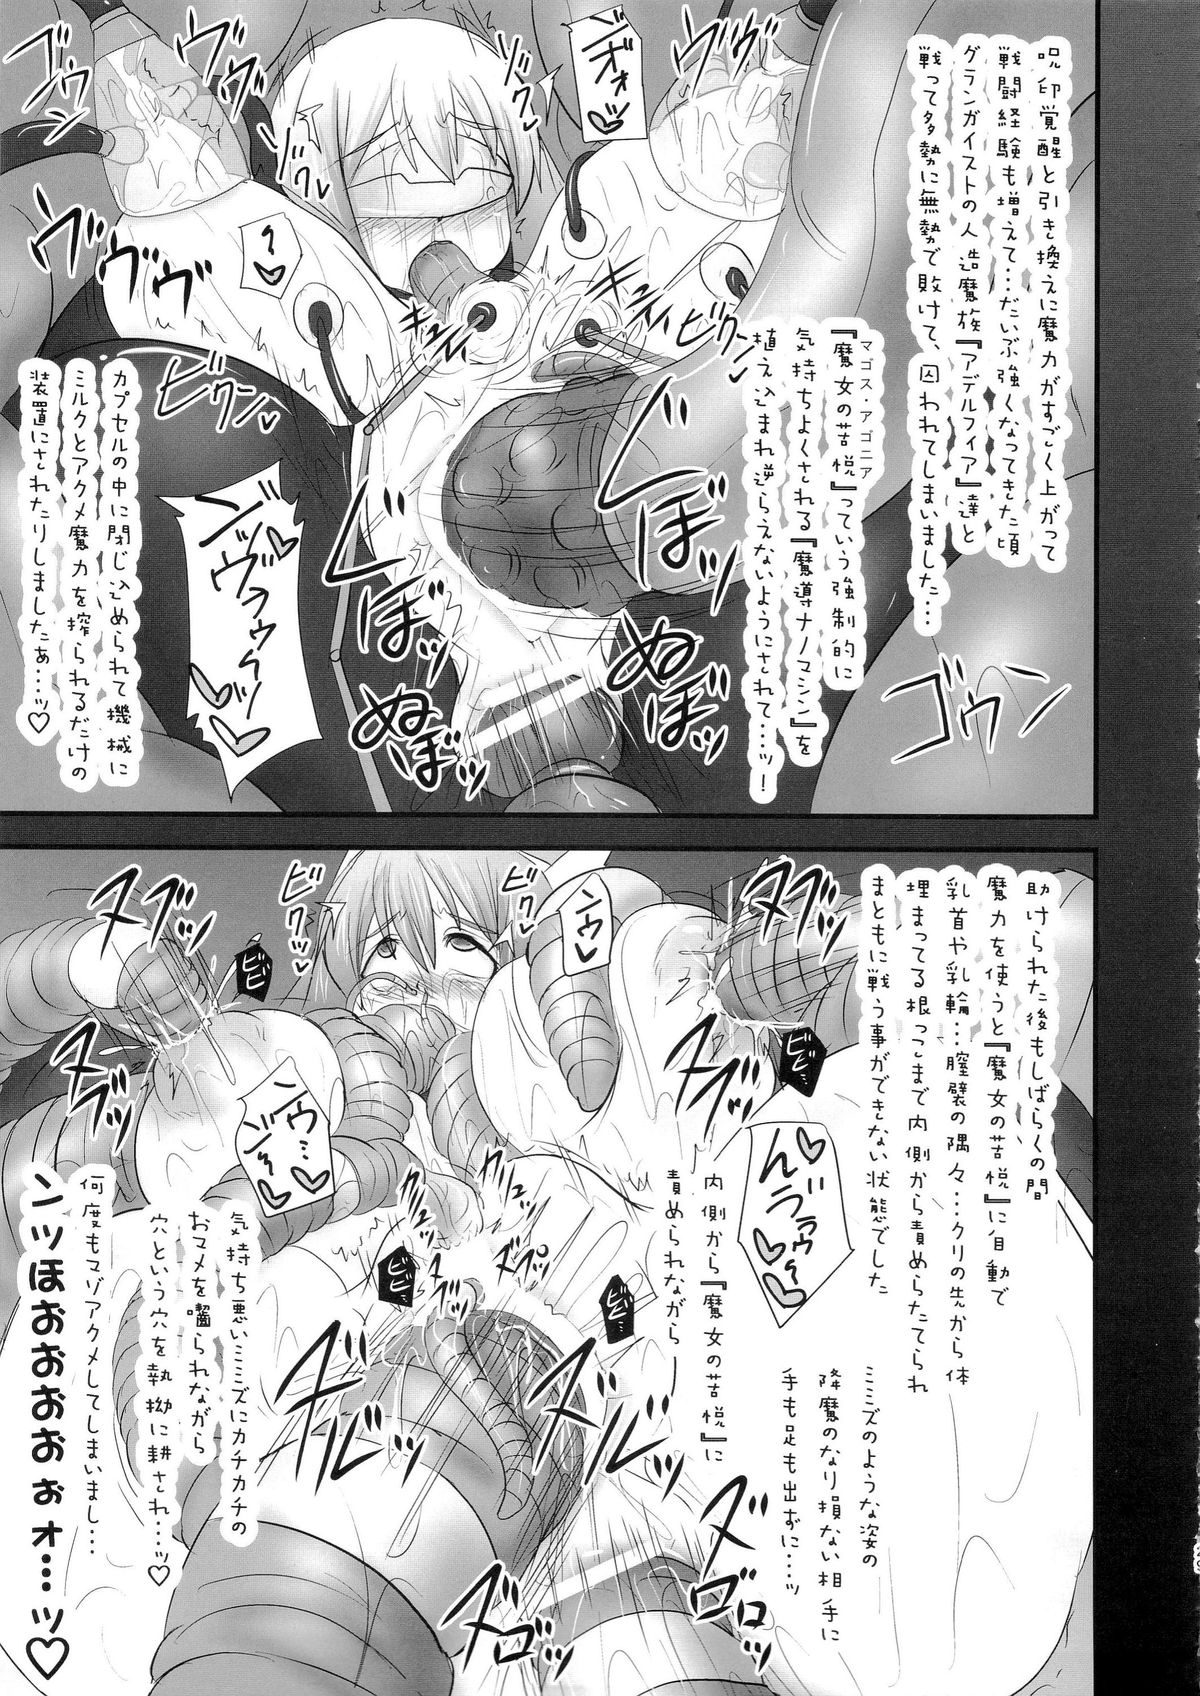 呪印覚醒と引き換えに魔力がすごく上がって
戦闘経験も増えて…だいぶ強くなってきた頃
グランガイストの人造魔族『アデルフィア』達と
戦って多勢に無勢で敗けて、囚われてしまいました…
『魔女の苦悦』っていう強制的に
マゴス・アゴニア
気持ちよくされる『魔導ナノマシン』を
植え込まれ逆らえないようにされて…ッ!
カプセルの中に閉じ込められて機械に
ミルクとアクメ魔力を搾られるだけの
装置にされたりしましたぁ…ッ♡
ヴヴヴ
ゴウン
ゴウン
ビクーン
ビクーン
ぬぼぉッ
助けられた後もしばらくの間
魔力を使うと『魔女の苦悦』に自動で
乳首や乳輪…膣襞の隅々…クリの先から体
埋まってる根っこまで内側から責めらたてられ
まともに戦う事ができない状態でした
ミミズのような姿の
降魔のなり損ない相手に
手も足も出ずに…ッ
内側から『魔女の苦悦』に
責められながら
気持ち悪いミミズにカチカチの
おマメを囓られながら
穴という穴を執拗に耕され…ッ♡
何度もマゾアクメしてしまいまし…
ンッほおおおおぉォ…ッ♡
ビクッ
ビクッ
ビビ
ビビ
ビビ
ビビ
ンウ…